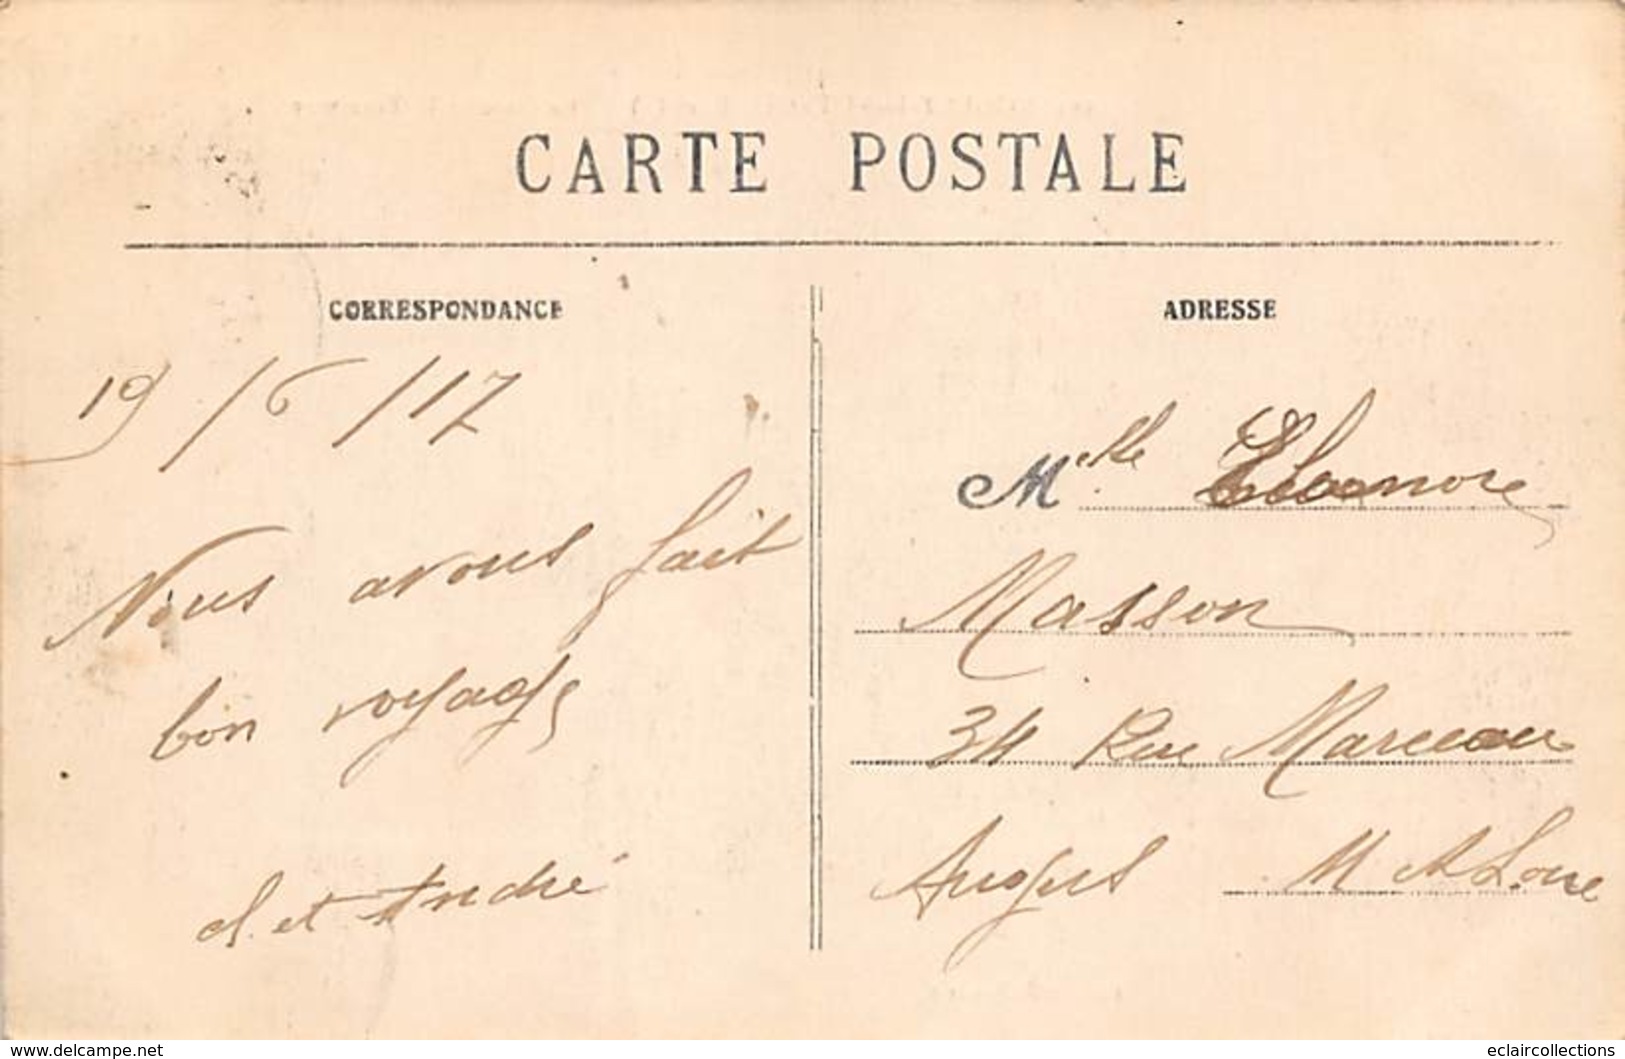 CARTE POSTALE
CORRESPONDANCE
19/6/17
Nous avons fait
bon voyage
et André
ADRESSE
Mlle Eleonore
Masson
34 Rue Marceau
Angers M et Loire
www.delcampe.net
eclaircollections